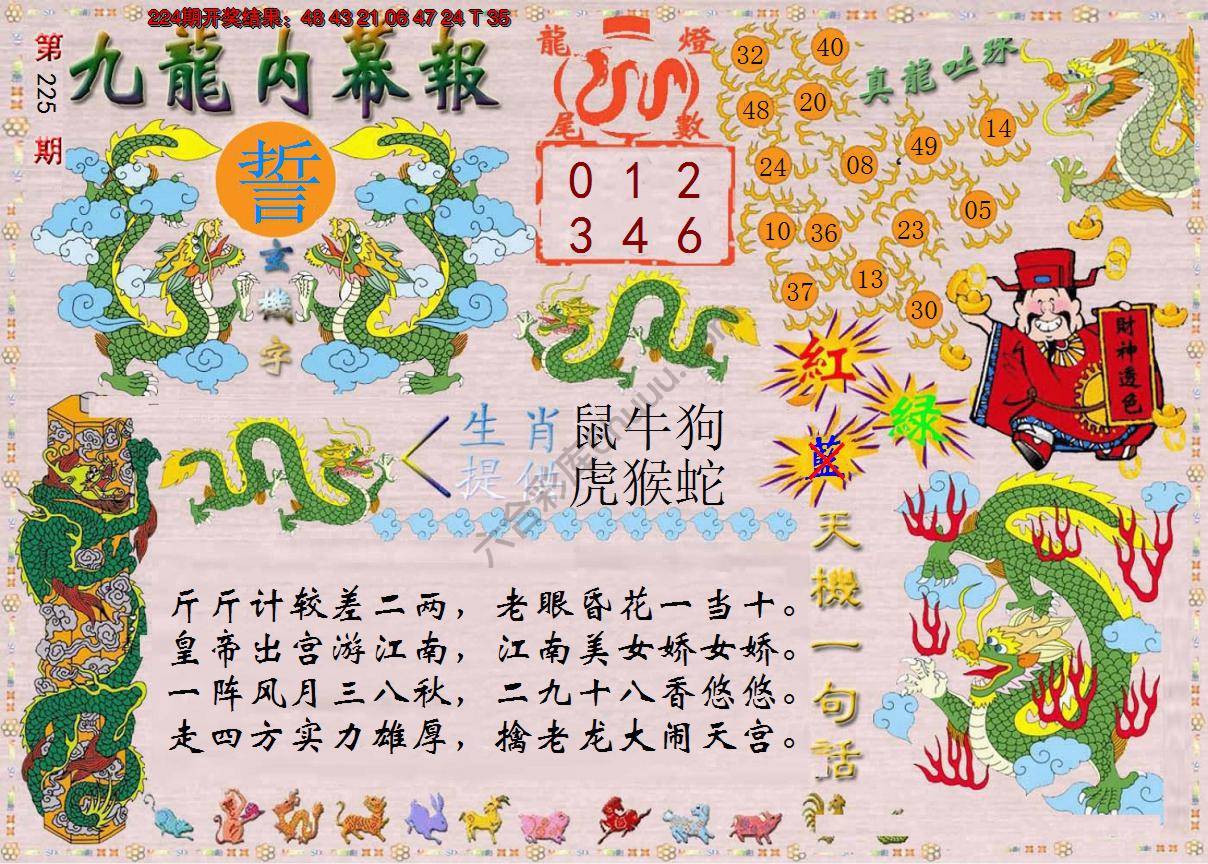 224期开奖结果：48 43 21 06 47 24 T 35
第225期
九龍内幕報
誓
玄機字
龍燈尾數
0 1 2
3 4 6
真龍吐珠
32 40
48 20
24 08 49 14
10 36 23 05
37 13 30
財神透色
紅
綠
藍
生肖提供
鼠牛狗
虎猴蛇
天機一句话
斤斤计较差二两，老眼昏花一当十。
皇帝出宫游江南，江南美女娇女娇。
一阵风月三八秋，二九十八香悠悠。
走四方实力雄厚，擒老龙大闹天宫。